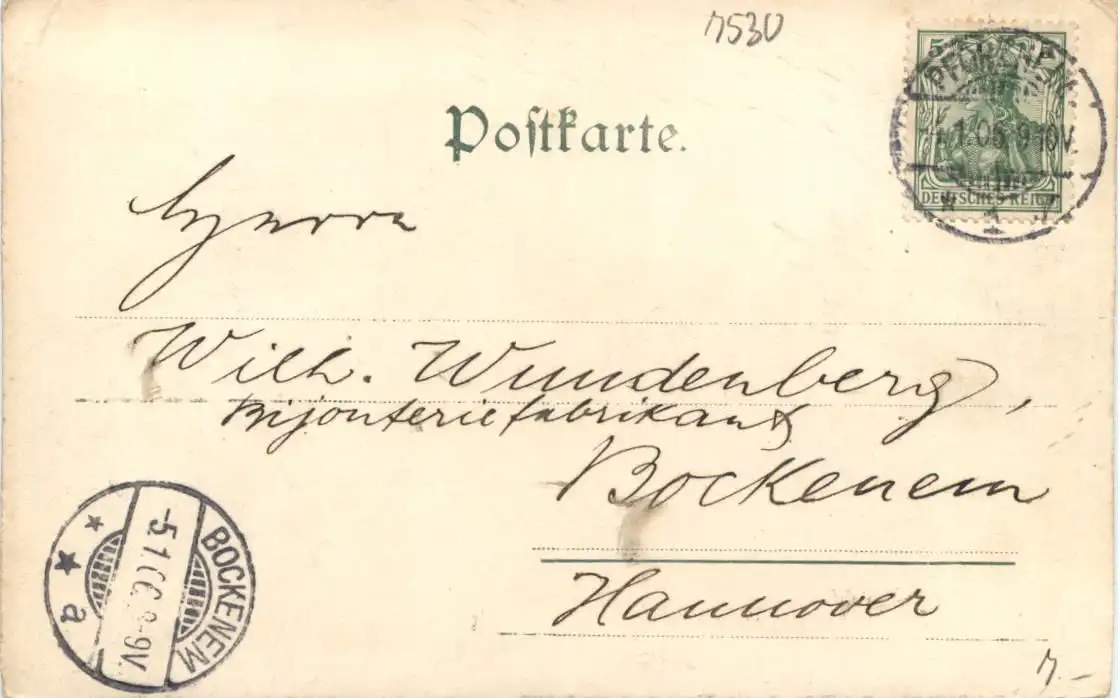 7530
5
PFORZHEIM
1.06 9-10V.
1
DEUTSCHES REICH
Postkarte.
Herrn
Wilh. Wundenberg,
Bijouteriefabrikant
Bockenem
Hannover
BOCKENEM
-5.1.06. 8-9V.
a
7.-